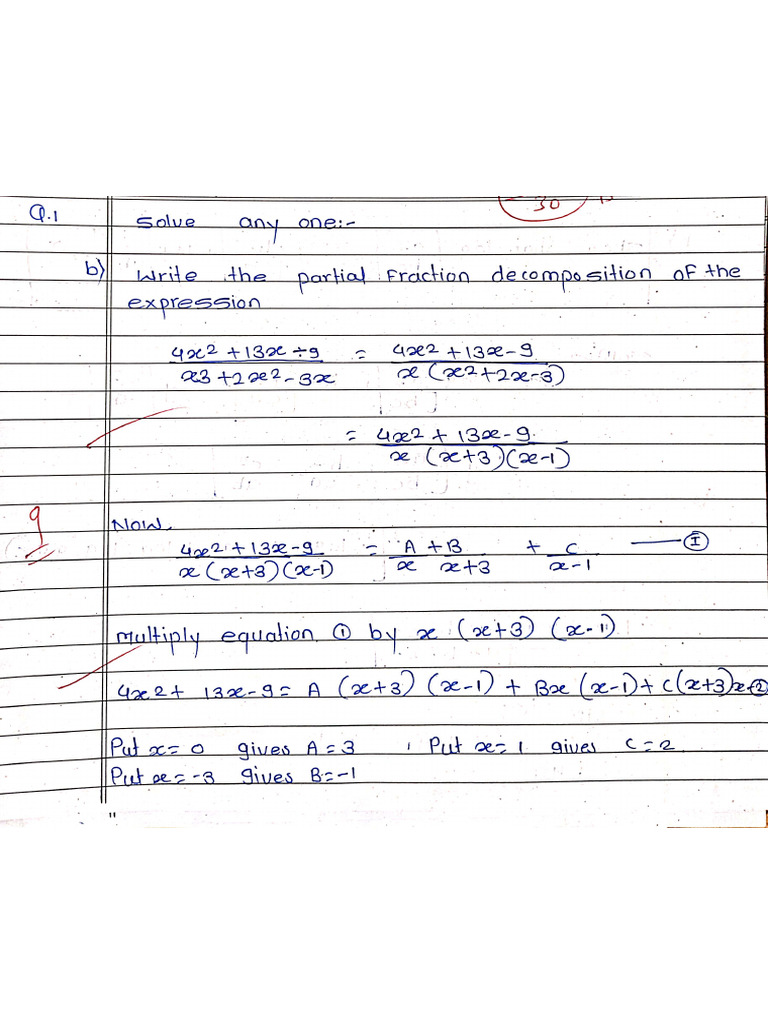 30
Q.1 Solve any one:-
b) Write the partial Fraction decomposition of the
expression
4x2 + 13x ÷ 9 = 4x2 + 13x - 9
x3 + 2x2 - 3x x (x2 + 2x - 3)
= 4x2 + 13x - 9
x (x+3)(x-1)
9
Now,
4x2 + 13x - 9 = A + B + C — I
x (x+3) (x-1) x x+3 x-1
multiply equation ① by x (x+3) (x-1)
4x2 + 13x - 9 = A (x+3) (x-1) + Bx (x-1) + C(x+3)x -②
Put x = 0 gives A = 3 , Put x = 1 gives C = 2
Put x = -3 gives B = -1
"